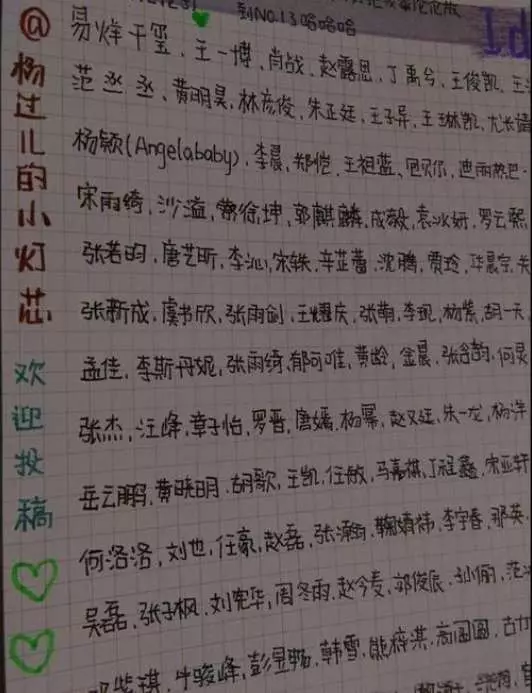 到NO.13哈哈哈
Id
@杨过儿的小灯芯
欢迎投稿
易烊千玺、王一博、肖战、赵露思、丁禹兮、王俊凯、王
范丞丞、黄明昊、林彦俊、朱正廷、王子异、王琳凯、尤长靖
杨颖(Angelababy)、李晨、郑恺、王祖蓝、包贝尔、迪丽热巴
宋雨绮、沙溢、蔡徐坤、郭麒麟、成毅、袁冰妍、罗云熙
张若昀、唐艺昕、李沁、宋轶、辛芷蕾、沈腾、贾玲、华晨宇、朱
张新成、虞书欣、张雨剑、王耀庆、张萌、李现、杨紫、胡一天、
孟佳、李斯丹妮、张雨绮、郁可唯、黄龄、金晨、张含韵、何炅
张杰、汪峰、章子怡、罗晋、唐嫣、杨幂、赵又廷、朱一龙、杨洋
岳云鹏、黄晓明、胡歌、王凯、任敏、马嘉祺、丁程鑫、宋亚轩
何洛洛、刘也、任豪、赵磊、张瀚韵、鞠婧祎、李宇春、那英、
吴磊、张子枫、刘宪华、周冬雨、赵今麦、郭俊辰、孙俪、范
邓紫棋、牛骏峰、彭昱畅、韩雪、熊梓淇、高圆圆、古力